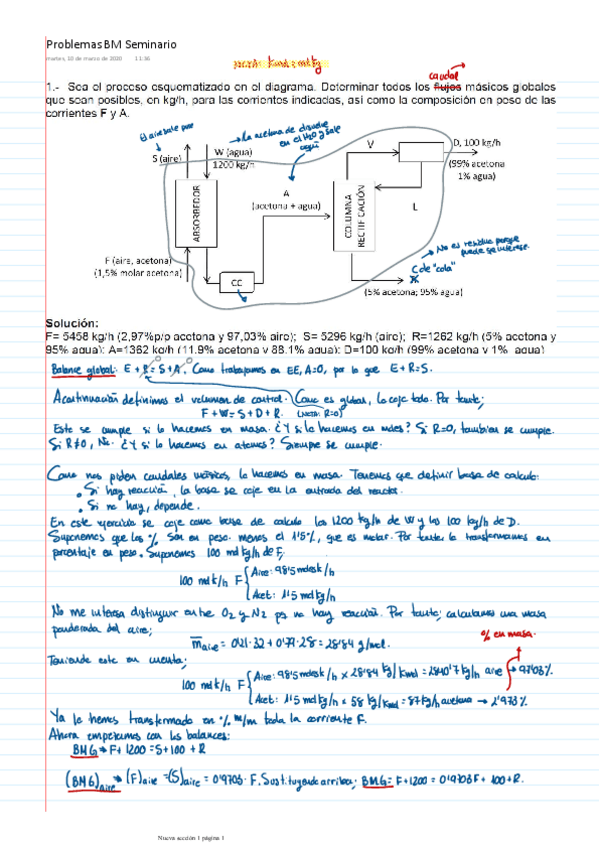 Problemas BM Seminario
martes, 10 de marzo de 2020 11:36
caudal
1.- Sea el proceso esquematizado en el diagrama. Determinar todos los flujos másicos globales
que sean posibles, en kg/h, para las corrientes indicadas, así como la composición en peso de las
corrientes F y A.
El aire sale puro
La acetona de disuelve
en el H2O y sale
aquí
S (aire)
W (agua)
1200 kg/h
V
D, 100 kg/h
(99% acetona
1% agua)
A
(acetona + agua)
L
ABSORBEDOR
COLUMNA
RECTIFICACIÓN
No es residuo porque
puede
F (aire, acetona)
(1,5% molar acetona)
CC
C de "cola"
(5% acetona; 95% agua)
Solución:
F= 5458 kg/h (2,97%p/p acetona y 97,03% aire); S= 5296 kg/h (aire); R=1262 kg/h (5% acetona y
95% agua); A=1362 kg/h (11,9% acetona y 88,1% agua); D=100 kg/h (99% acetona y 1% agua)
Balance global: E + R = S + A. Como trabajamos en EE, A=0, por lo que E+R=S.
A continuación definimos el volumen de control. Como es global, lo coje todo. Por tanto;
F+W=S+D+R. (NOTA: R=0)
Este se cumple si lo hacemos en masa. ¿Y si lo hacemos en moles? Si R=0, también se cumple.
Si R≠0, No. ¿Y si lo hacemos en átomos? Siempre se cumple.
Como nos piden caudales másicos, lo hacemos en masa. Tenemos que definir base de calculo:
• Si hay reacción, la base se coje en la entrada del reactor.
• Si no hay, depende.
En este ejercicio se coje como base de calculo los 1200 kg/h de W y los 100 kg/h de D.
Suponemos que los % son en peso. menos el 1'5%, que es molar. Por tanto lo transformamos en
porcentaje en peso. Suponemos 100 mol kg/h de F;
100 mol k/h F { Aire: 98'5 molesk/h
Acet: 1'5 molk/h
No me interesa distinguir entre O2 y N2 pq no hay reacción. Por tanto; calculamos una masa
ponderada del aire;
m̄aire = 0'21·32 + 0'79·28 = 28'84 g/mol.
% en masa.
Teniendo esto en cuenta;
100 mol k/h F { Aire: 98'5 molesk/h × 28'84 kg/kmol = 2840'7 kg/h aire → 97'03%
Acet: 1'5 molk/h × 58 kg/kmol = 87 kg/h acetona → 2'973%
Ya lo hemos transformado en % m/m toda la corriente F.
Ahora empezamos con los balances:
BMG → F + 1200 = S + 100 + R
(BMG)aire → (F)aire = (S)aire = 0'9703 · F. Sustituyendo arriba: BMG = F + 1200 = 0'9703F + 100 + R.
Nueva sección 1 página 1